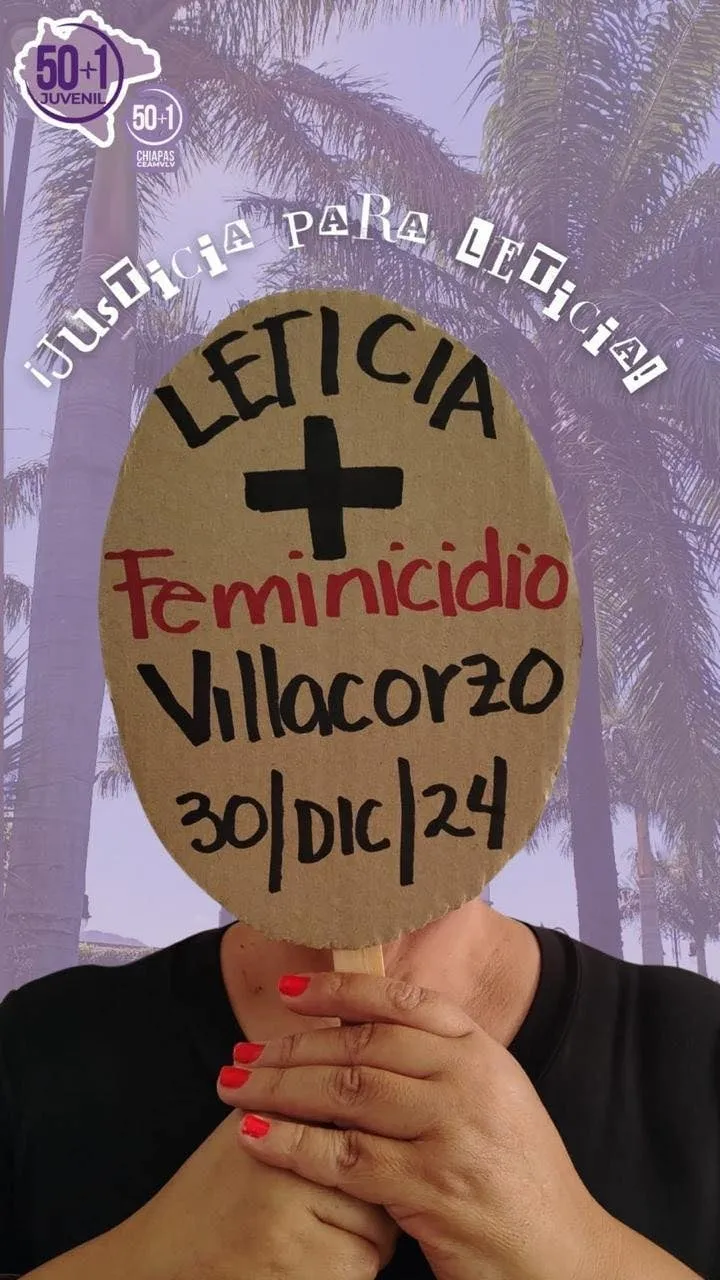 50+1
JUVENIL
50+1
CHIAPAS
CEAMVLV
¡JUSTICIA PARA LETICIA!
LETICIA
+
Feminicidio
Villacorzo
30/DIC/24